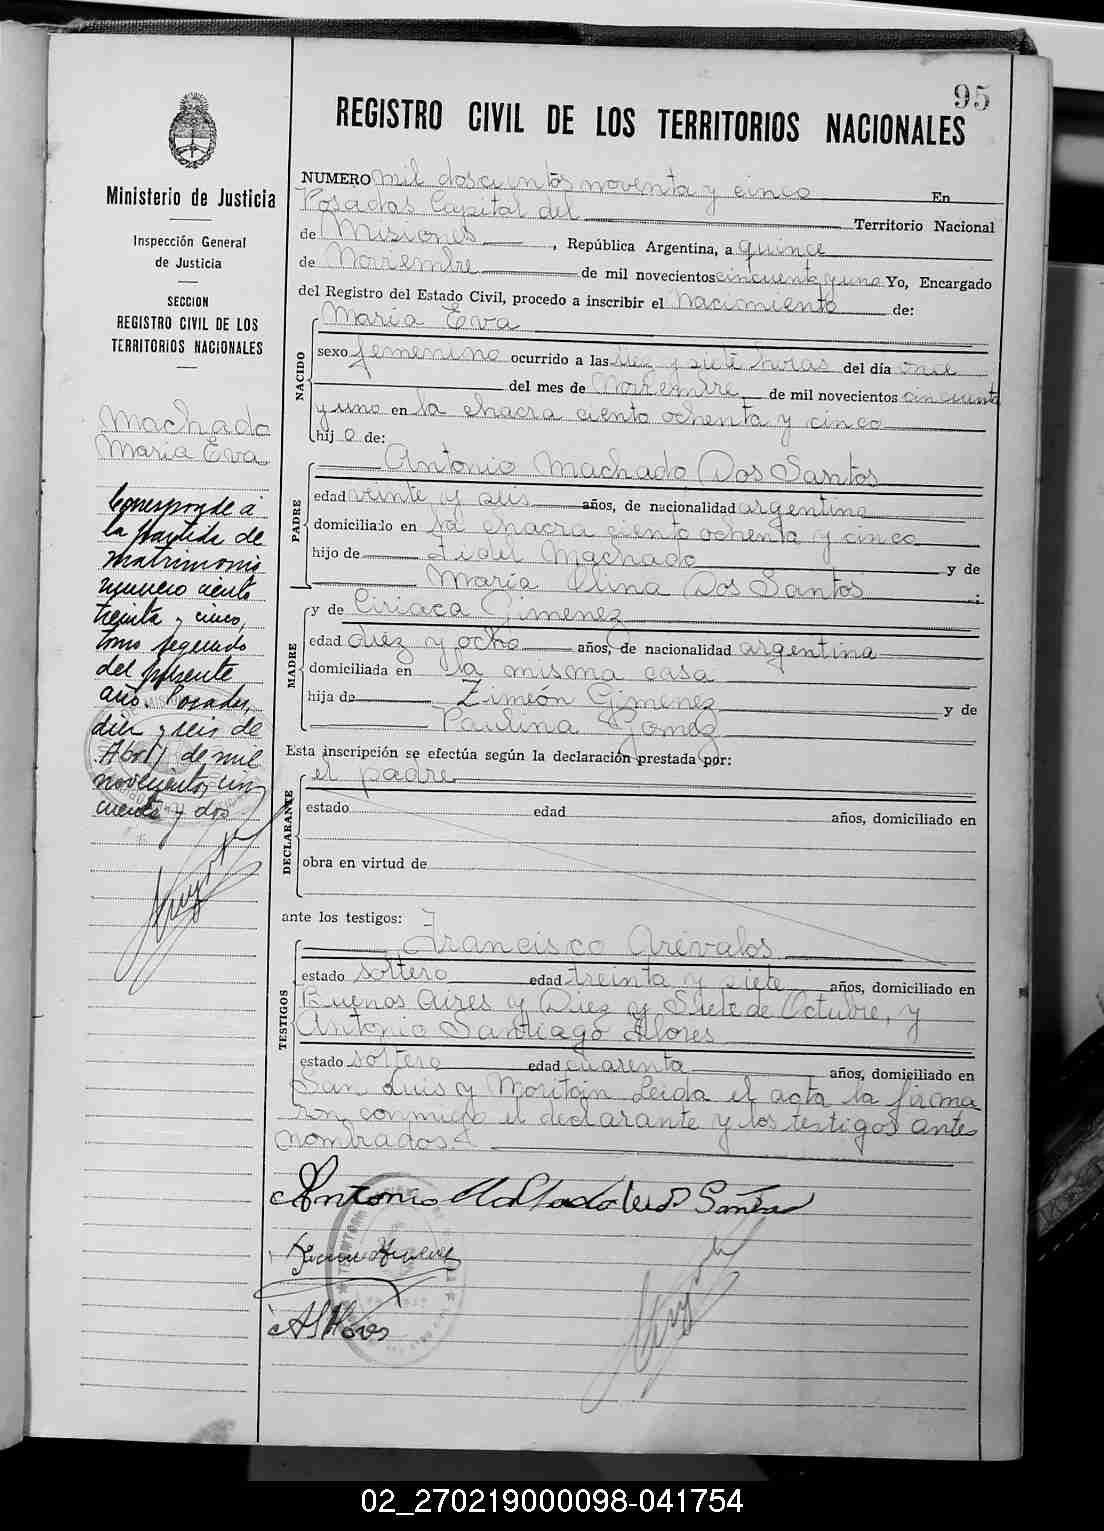 95
REGISTRO CIVIL DE LOS TERRITORIOS NACIONALES
Ministerio de Justicia
Inspección General
de Justicia
SECCION
REGISTRO CIVIL DE LOS
TERRITORIOS NACIONALES
Machado
Maria Eva
Corresponde a
la partida de
matrimonio
numero ciento
treinta y cinco,
tomo segundo
del presente
año. Posadas,
diez y seis de
Abril de mil
novecientos cin
cuenta y dos
NUMERO mil doscientos noventa y cinco En
Posadas Capital del Territorio Nacional
de Misiones, República Argentina, a quince
de Noviembre de mil novecientos cincuenta y uno Yo, Encargado
del Registro del Estado Civil, procedo a inscribir el nacimiento de:
NACIDO
Maria Eva
sexo femenino ocurrido a las diez y siete horas del día
del mes de Noviembre de mil novecientos cincuenta
y uno en la chacra ciento ochenta y cinco
hij a de:
PADRE
Antonio Machado Dos Santos
edad veinte y seis años, de nacionalidad argentina
domiciliado en la chacra ciento ochenta y cinco
hijo de Fidel Machado y de
Maria Dos Santos;
MADRE
y de Ciriaca Gimenez
edad diez y ocho años, de nacionalidad argentina
domiciliada en la misma casa
hija de Zimeón Gimenez y de
Paulina Gomez
Esta inscripción se efectúa según la declaración prestada por:
DECLARANTE
el padre
estado edad años, domiciliado en
obra en virtud de
ante los testigos:
TESTIGOS
Francisco Arévalos
estado soltero edad treinta y siete años, domiciliado en
Buenos Aires y Diez y Siete de Octubre, y
Antonio Santiago Flores
estado soltero edad cuarenta años, domiciliado en
San Luis y Moritán Leida el acta la firma
ron conmigo el declarante y los testigos ante
nombrados.
Antonio Machado Dos Santos
02_270219000098-041754